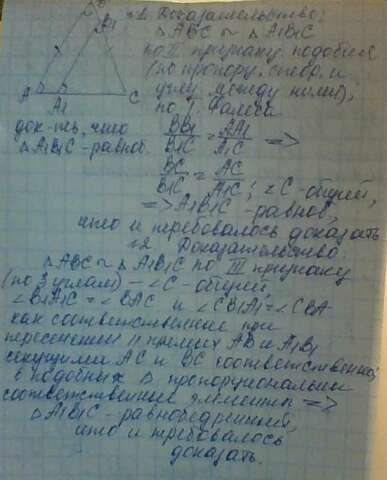 B
B1
A
A1
C
док-ть, что
△ A1B1C - равноб.
№1. Доказательство:
△ ABC ~ △ A1B1C
по II признаку подобия
(по пропорц. сторон. и
углу между ними);
по т. Фалеса
BB1/B1C = AA1/A1C =>
BC/B1C = AC/A1C; ∠C - общий,
=> A1B1C - равноб,
что и требовалось доказать.
№2 Доказательство:
△ ABC ~ △ A1B1C по III признаку
(по 3 углам) - ∠C - общий,
∠B1A1C = ∠BAC и ∠CB1A1 = ∠CBA
как соответственные при
пересечении || прямых AB и A1B1
секущими AC и BC соответственно;
в подобных △ пропорциональны
соответственные элементы =>
△ A1B1C - равнобедренный,
что и требовалось
доказать.